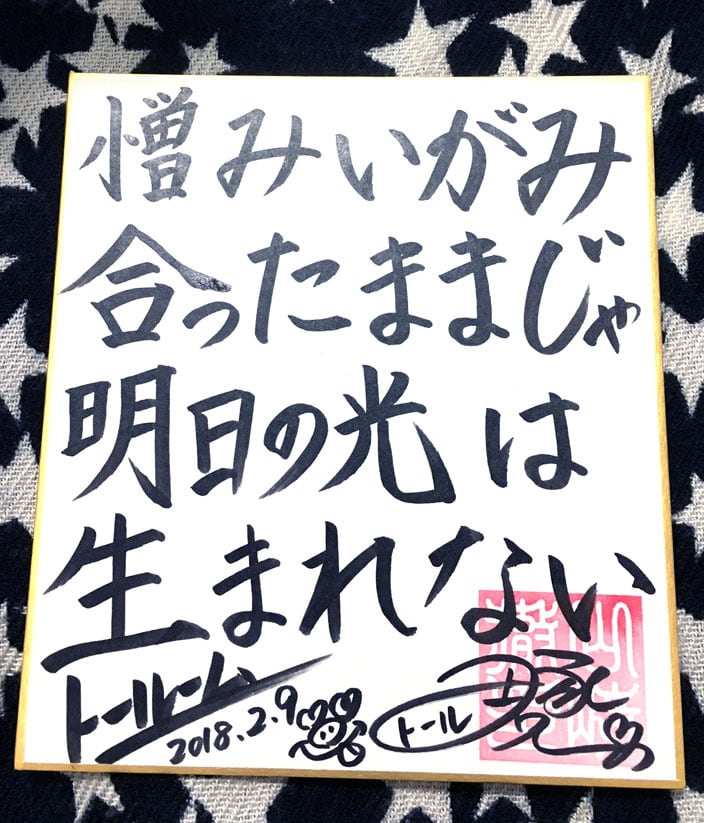 憎みいがみ
合ったままじゃ
明日の光は
生まれない
トールーム
2018.2.9
トール